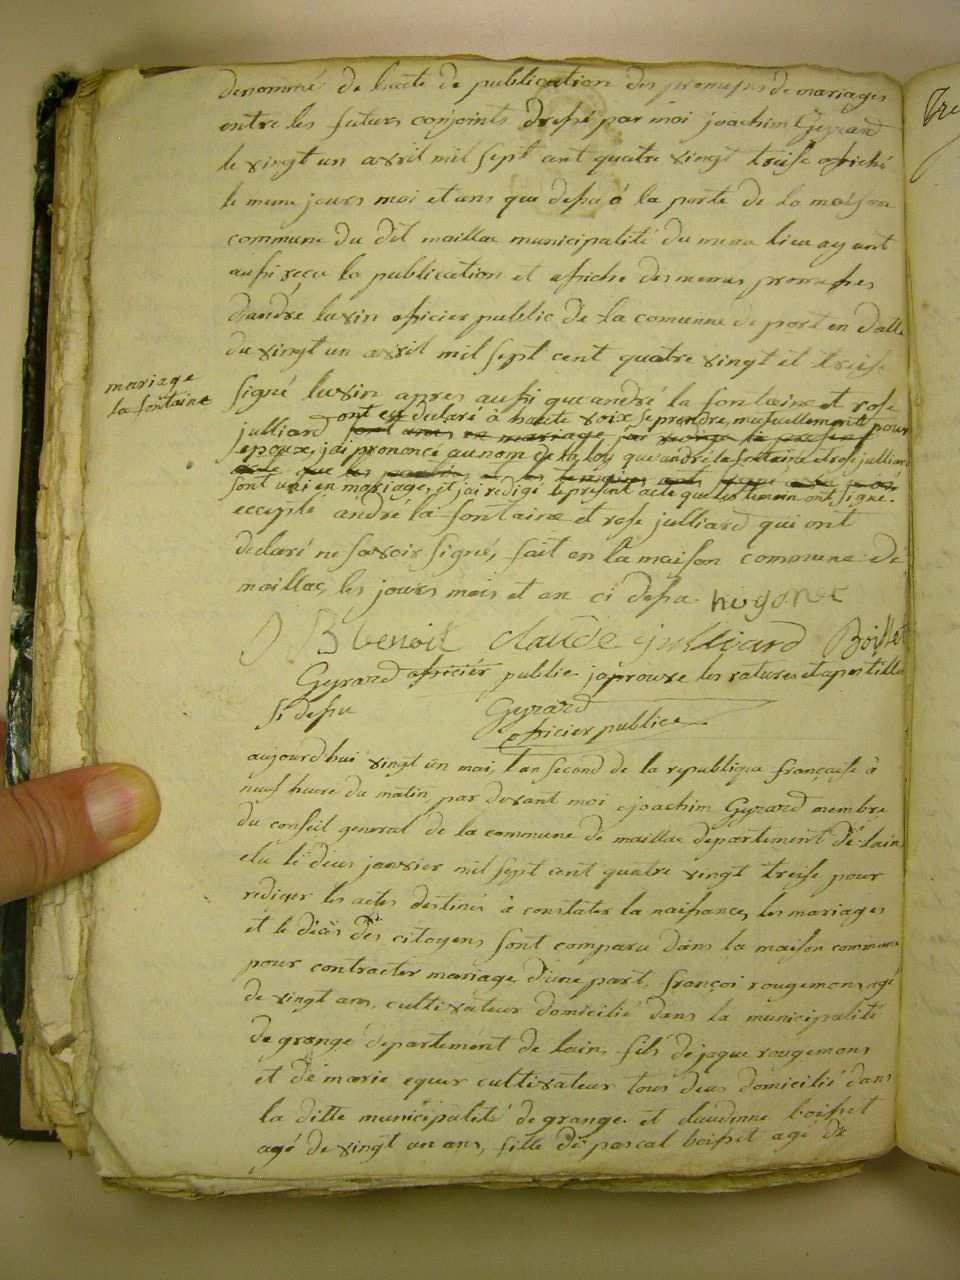 denommé de lacte de publication des promesses de mariages
entre les futurs conjoints dressé par moi joachim Gyrard
le vingt un avril mil sept cent quatre vingt treise afiché
le meme jours moi et ans que dessu á la porte de la maison
commune du dit maillac municipalité du meme lieu ayant
aussi reçu la publication et afiche des memes promesses
dandré luvin oficier public de la comunne de port en dalle
du vingt un avril mil sept cent quatre vingt et treise
mariage
la fontaine
signé luvin apres aussi que andré la fontaine et rose
julliard ont eu declaré à haute voix se prendre mutuellement pour
epoux, jai prononcé au nom de la loy que andré la fontaine et rose julliard
sont uni en mariage, et jai redigé le present acte que les temoin ont signé.
eccepté andré la fontaine et rose julliard qui ont
declaré ne savoir signé, fait en la maison commune de
maillac les jours mois et an ci dessu hugonet
B benoit claude julliard Boisset
Gyrard oficiér public japrouve les ratures et apostille
si dessu Gyrard
oficier publice
aujourdhui vingt un mai, l'an second de la republique française à
neuf heure du matin par devant moi joachim Gyrard membre
du conseil general de la commune de maillac departement de lain
elu le deux janvier mil sept cent quatre vingt treise pour
rediger les actes destinés à constater la naissance, les mariages
et le décès des citoyens sont comparu dans la maison commune
pour contracter mariage, d'une part, françoi rougemons, agé
de vingt ans, cultivateur domicilié dans la municipalité
de grange departement de lain, fils de jaque rougemons
et de marie equer cultivateur tous deux domicilié dans
la ditte municipalité de grange. et claudinne boisset
agé de vingt un ans, fille de pascal boisset agé de